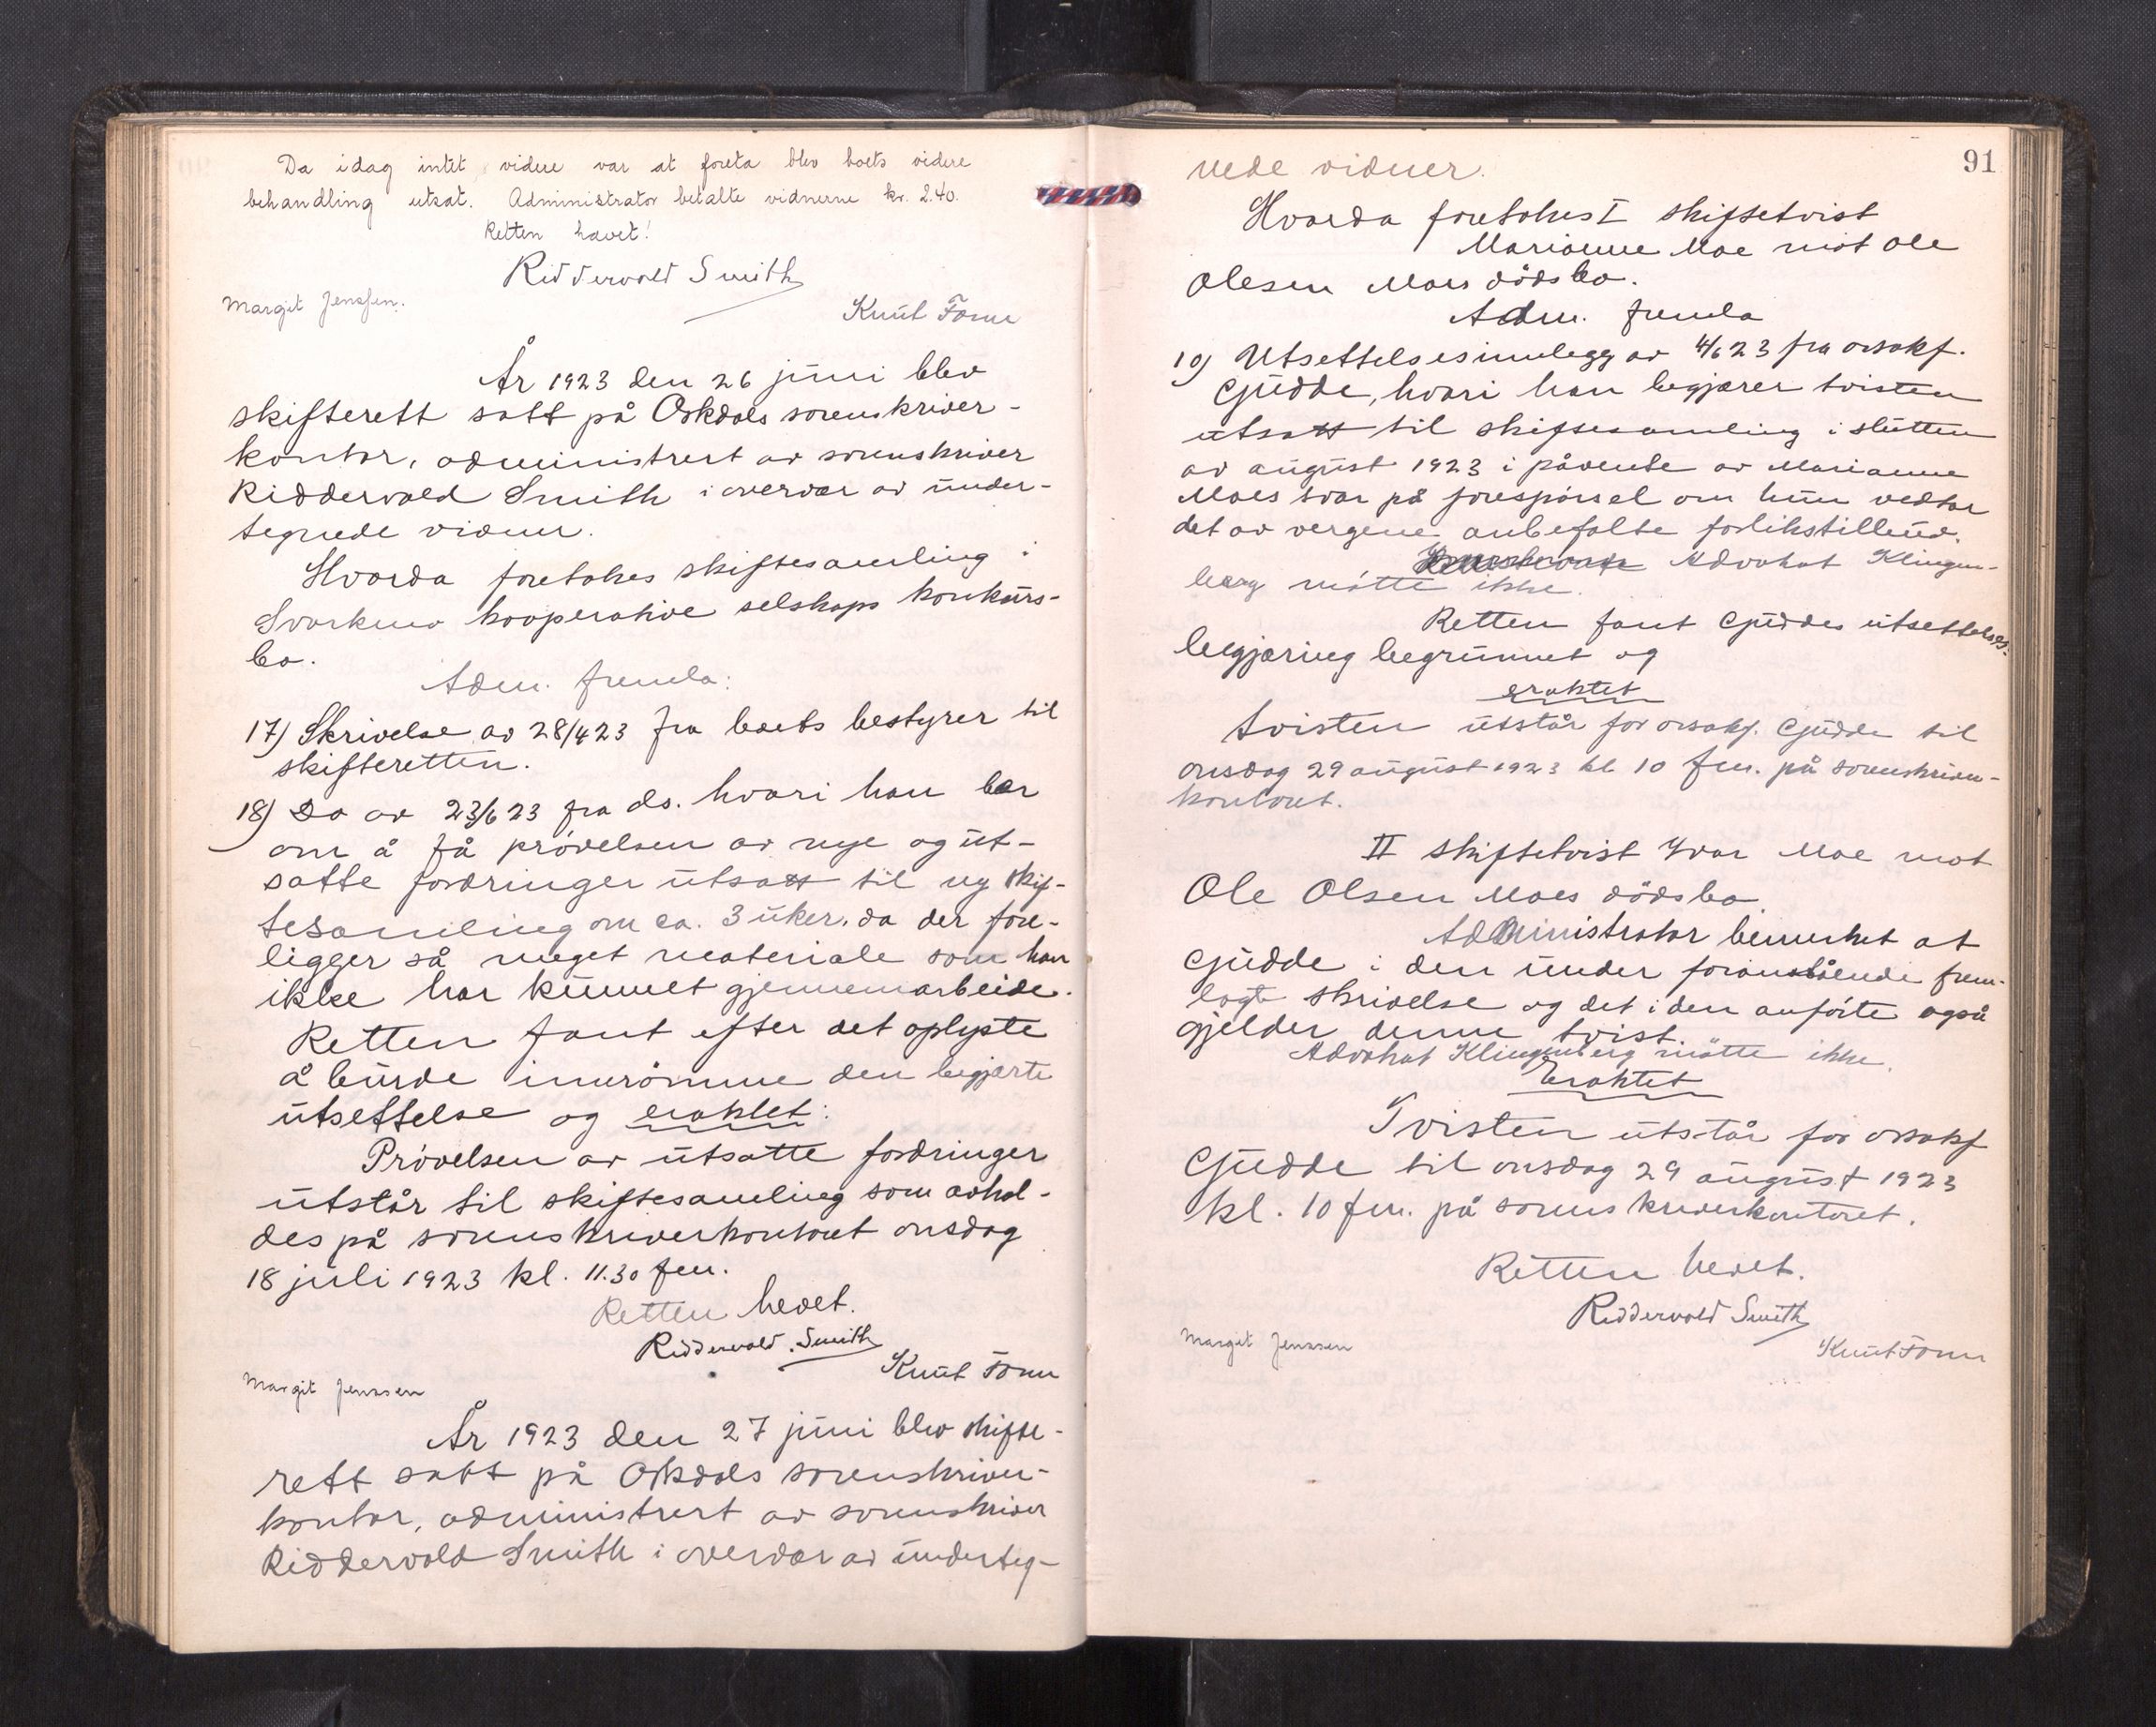 Da idag intet videre var at foreta blev boets videre
behandling utsat. Administrator betalte vidnerne kr. 2.40.
Retten hævet!
Riddervold Smith
Margit Jenssen.
Knut
År 1923 den 26 juni blev
skifterett satt på Orkdals sorenskriver-
kontor, administrert av sorenskriver
Riddervold Smith i overvær av under-
tegnede vidner.
Hvorda foretokes skiftesamling i
Svorkmo kooperative selskaps konkurs-
bo.
Adm. fremla:
17) Skrivelse av 28/4 23 fra boets bestyrer til
skifteretten.
18) Do av 23/6 23 fra ds. hvori han ber
om å få prøvelsen av nye og ut-
satte fordringer utsatt til ny skif-
tesamling om ca. 3 uker, da der fore-
ligger så meget materiale som han
ikke har kunnet gjennemarbeide.
Retten fant efter det oplyste
å burde innrømme den begjærte
utsettelse og eraktet:
Prøvelsen av utsatte fordringer
utstår til skiftesamling som avhol-
des på sorenskriverkontoret onsdag
18 juli 1923 kl. 11.30 fm.
Retten hevet.
Riddervold Smith
Knut
Margit Jenssen
År 1923 den 27 juni blev skifte-
rett satt på Orkdals sorenskriver-
kontor, administrert av sorenskriver
Riddervold Smith i overvær av underteg-
91
nede vidner.
Hvorda foretokes I skiftetvist
Marianne Moe mot Ole
Olesen Moes dødsbo.
Adm. fremla
19) Utsettelsesinnlegg av 4/6 23 fra orsakf.
Gjudde, hvori han begjærer tvisten
utsatt til skiftesamling i slutten
av august 1923 i påvente av Marianne
Moes svar på forespørsel om hun vedtar
det av vergene anbefalte forlikstillbud.
Advokat Klingen-
berg møtte ikke.
Retten fant Gjuddes utsettelses-
begjæring begrunnet og
eraktet
tvisten utstår for orsakf. Gjudde til
onsdag 29 august 1923 kl. 10 fm. på sorenskriver-
kontoret.
II skiftetvist Ivar Moe mot
Ole Olsen Moes dødsbo.
Administrator bemerket at
Gjudde i den under foranstående frem-
lagte skrivelse og det i den anførte også
gjelder denne tvist.
Advokat Klingenberg møtte ikke.
Eraktet
Tvisten utstår for orsakf
Gjudde til onsdag 29 august 1923
kl. 10 fm. på sorenskriverkontoret.
Retten hevet.
Riddervold Smith
Margit Jenssen
Knut